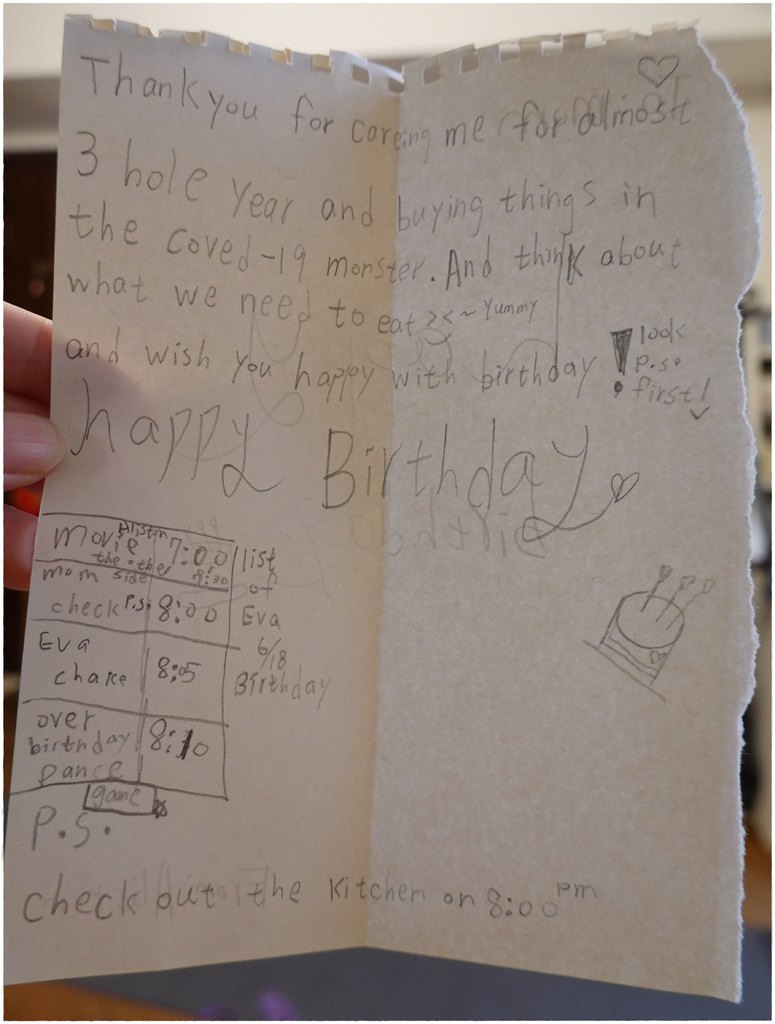 Thank you for careing me for almost
3 hole year and buying things in
the coved-19 monster. And think about
what we need to eat >< ~ Yummy
and wish you happy with birthday
! look
p.s.
first!
happy Birthday
movie 7:00
the other
8:30
mom side
check P.S. 8:00
Eva
8:05
over
birthday 8:10
Dance
game
list
of
Eva
6/18
Birthday
P.S.
check out the kitchen on 8:00 pm